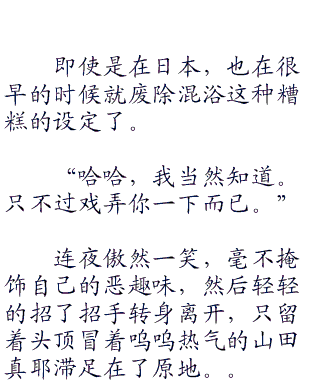 即使是在日本，也在很
早的时候就废除混浴这种糟
糕的设定了。
“哈哈，我当然知道。
只不过戏弄你一下而已。”
连夜傲然一笑，毫不掩
饰自己的恶趣味，然后轻轻
的招了招手转身离开，只留
着头顶冒着呜呜热气的山田
真耶滞足在了原地。。